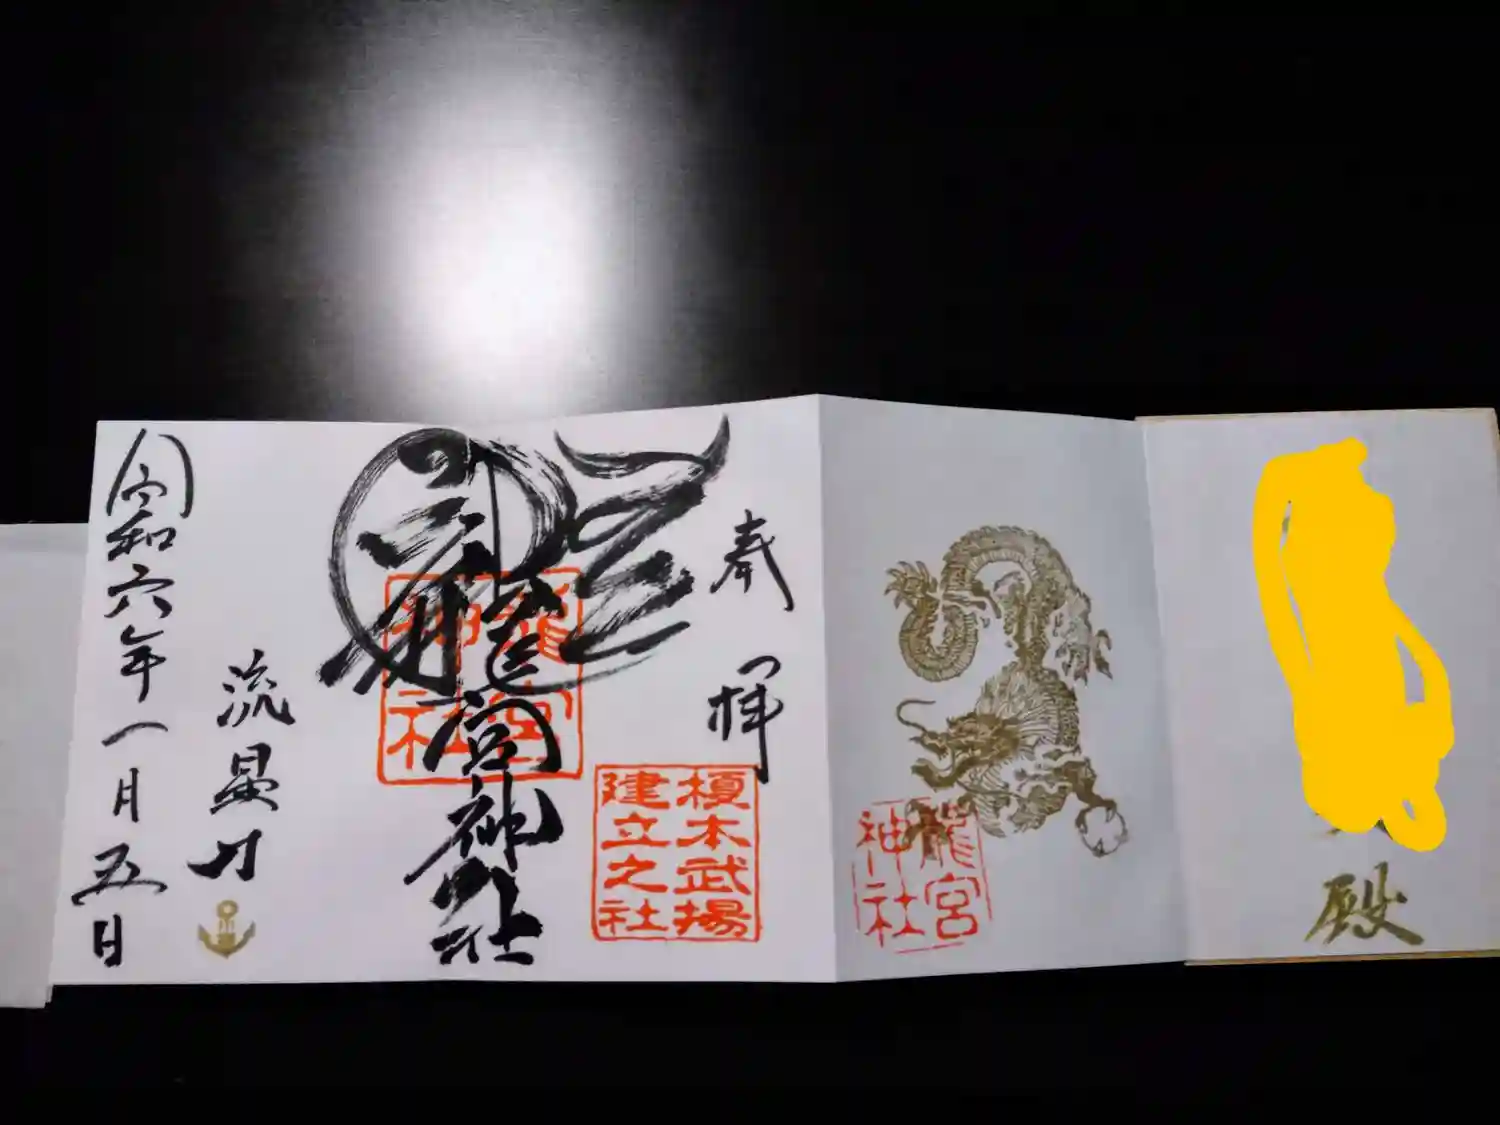 殿
龍宮
神社
奉拝
榎本武揚
建立之社
龍
龍宮
神社
龍宮神社
流星刀
令和六年一月五日